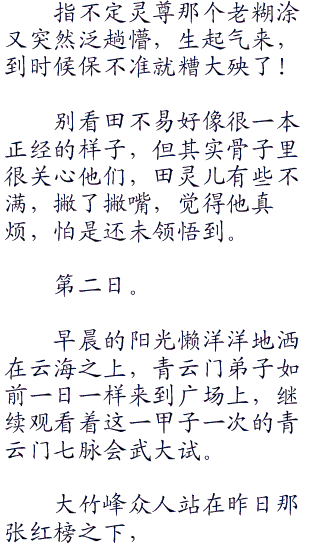 指不定灵尊那个老糊涂
又突然泛趟懵，生起气来，
到时候保不准就糟大殃了！
别看田不易好像很一本
正经的样子，但其实骨子里
很关心他们，田灵儿有些不
满，撇了撇嘴，觉得他真
烦，怕是还未领悟到。
第二日。
早晨的阳光懒洋洋地洒
在云海之上，青云门弟子如
前一日一样来到广场上，继
续观看着这一甲子一次的青
云门七脉会武大试。
大竹峰众人站在昨日那
张红榜之下，